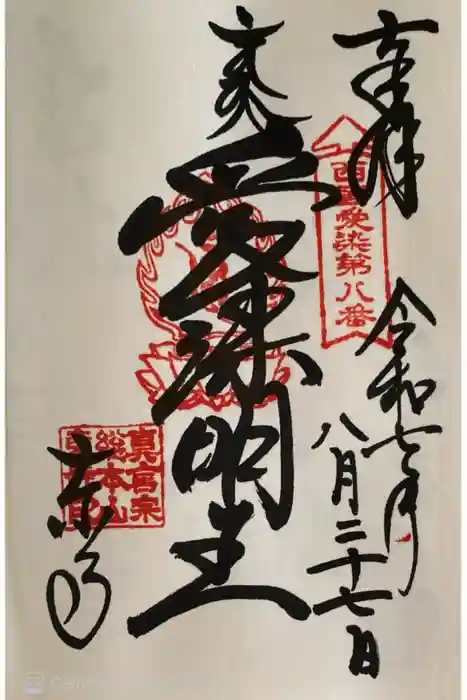 奉拝
令和七年
八月二十七日
西国愛染第八番
愛染明王
真言宗
総本山
東寺